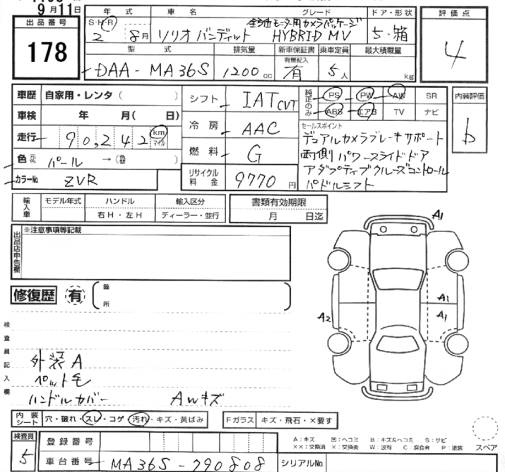 9月11日
出品番号
178
年式 車名 グレード ドア・形状
全方位モニター用カメラパッケージ
S・H・R 2 8月 ソリオバンディット HYBRID MV 5・箱
型式 排気量 新車保証書 乗車定員 最大積載量
DAA-MA36S 1200cc 有 5人 kg
評価点
4
内装評価
b
車歴 自家用・レンタ( )
車検 年 月( 日)
走行 90,242 km マイル
色 元色 パール →(
カラーNo ZVR
シフト IAT CVT
冷房 AAC
燃料 G
リサイクル料金 9770円
純正のみ PS PW AW SR
ABS エアB TV ナビ
セールスポイント
デュアルカメラブレーキサポート
両側パワースライドドア
アダプティブクルーズコントロール
パドルシフト
輸入車 モデル年式 ハンドル 輸入区分
右H・左H ディーラー・並行
書類有効期限
月 日迄
出品店申告欄
※注意事項等記載
修復歴 有 箇所
検査員記入欄
外装A
ペット毛
ハンドルカバー AWキズ
A1
A1
A1
A2
内装シート 穴・破れ・スレ・コゲ 汚れ・キズ・黄ばみ
Fガラス キズ・飛石・×要す
検査員
5
登録番号
車台番号 MA36S-790808
シリアルNo
A:キズ E:ヘコミ B:キズ&ヘコミ S:サビ
××:交換済 ×:交換要 W:波打 C:腐食 P:塗装
スペア